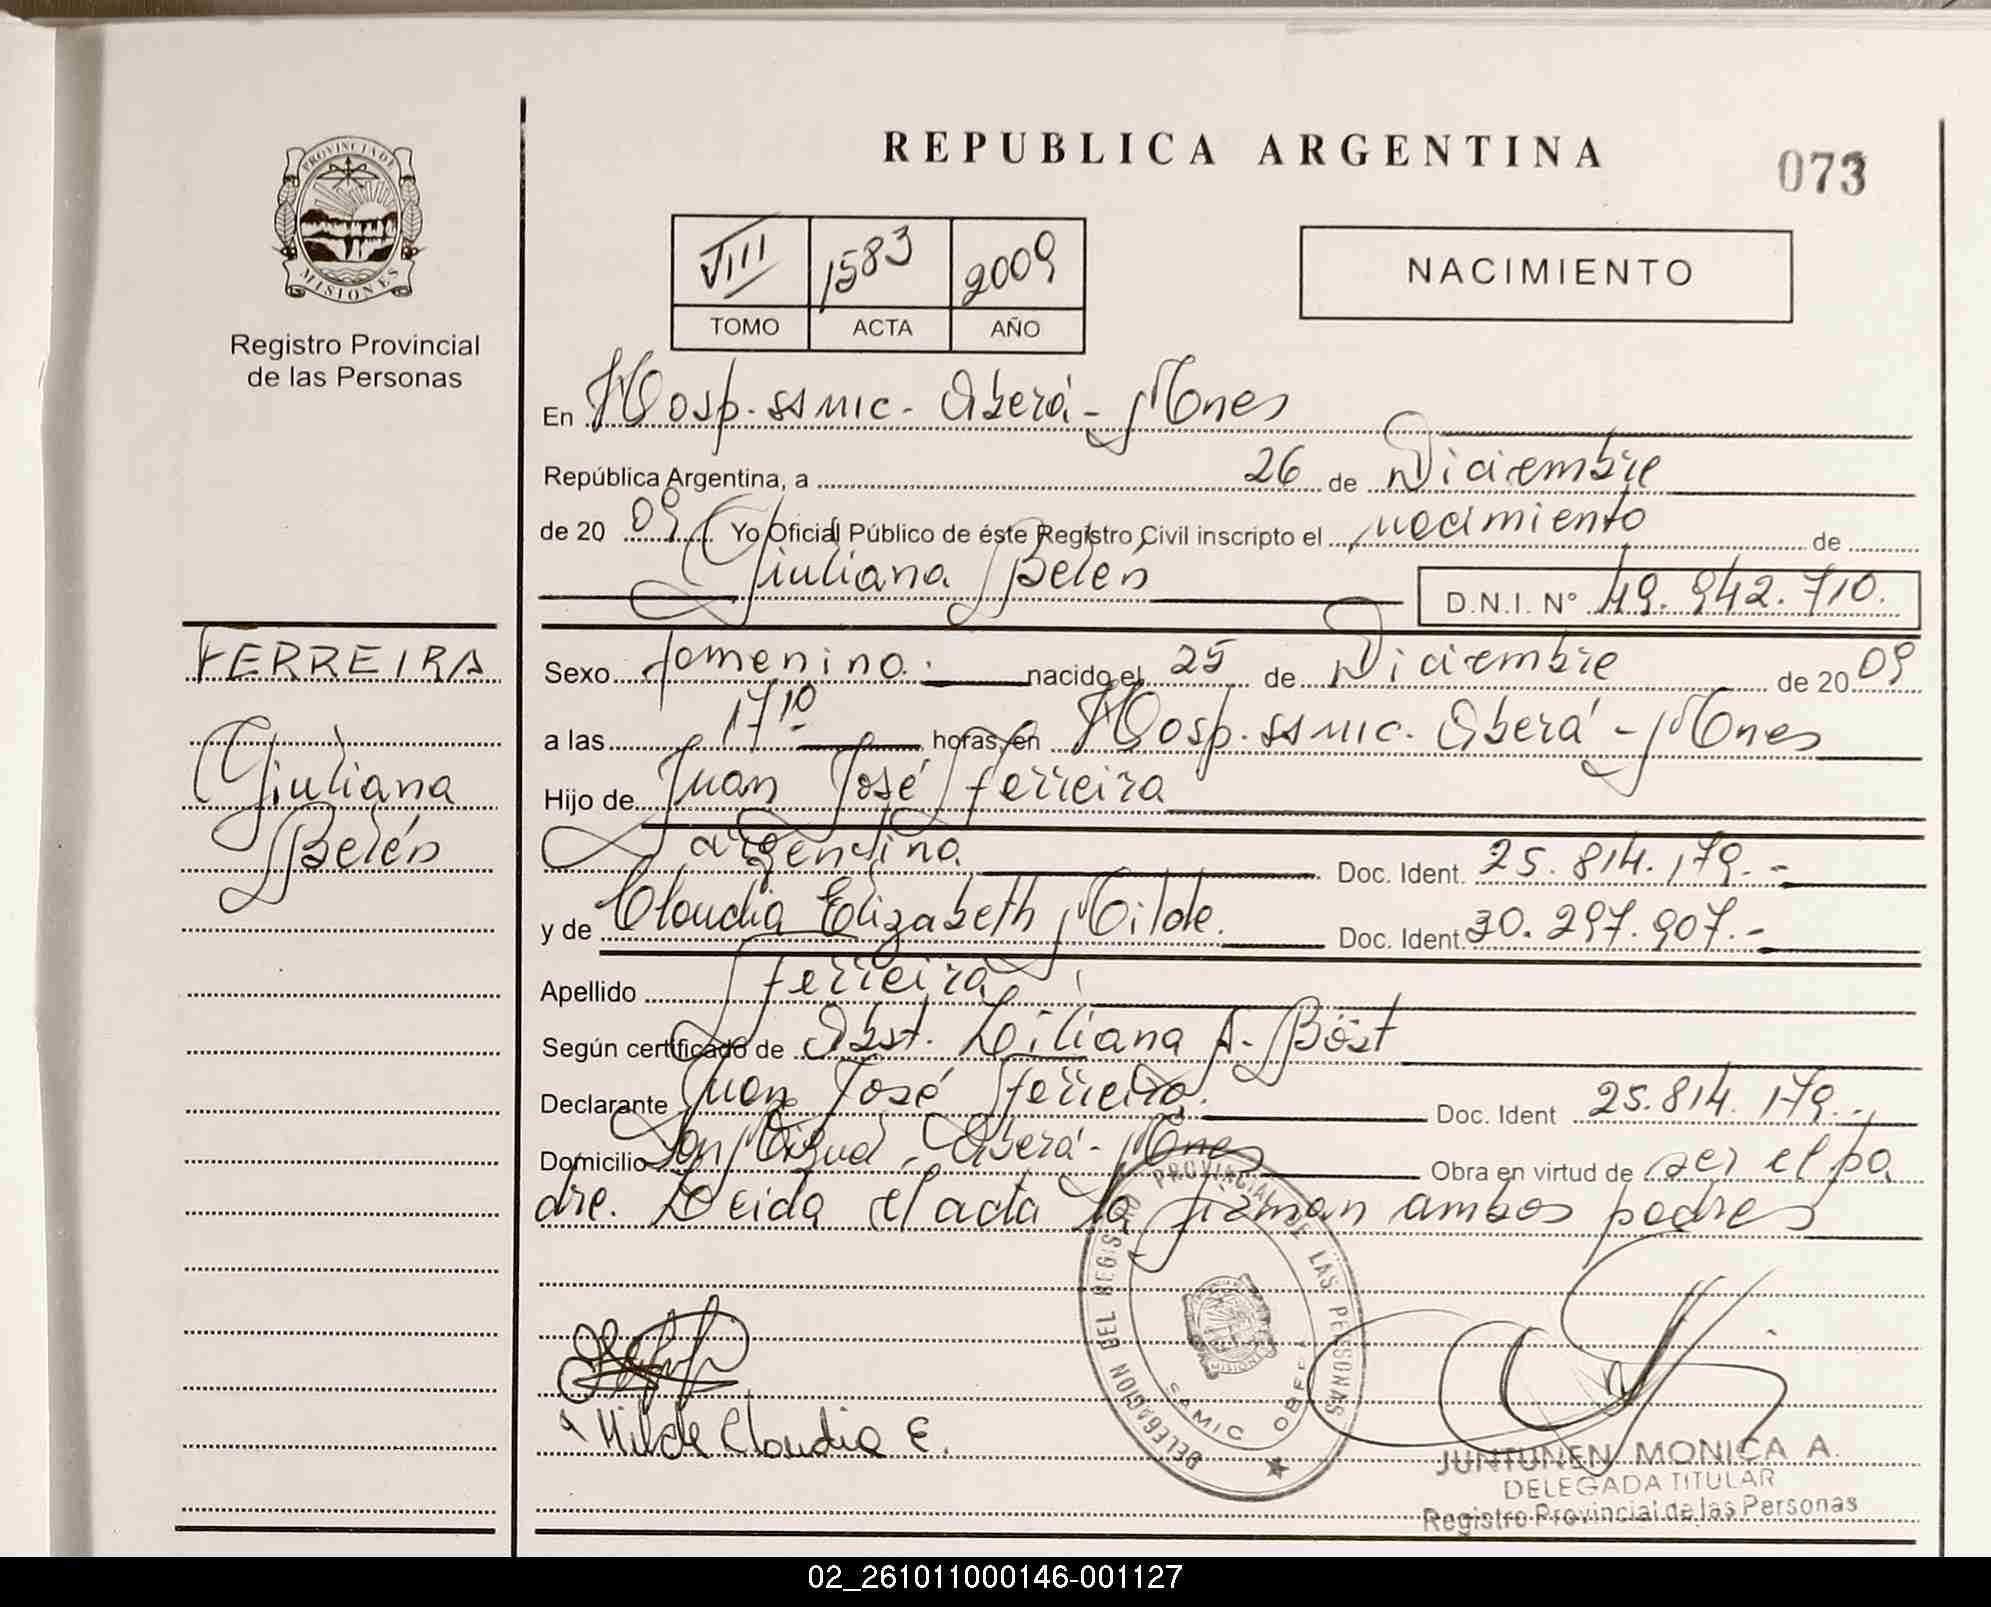 REPUBLICA ARGENTINA
073
PROVINCIA DE MISIONES
Registro Provincial
de las Personas
VIII 1583 2009
TOMO ACTA AÑO
NACIMIENTO
En Hosp. SAMIC - Oberá - Mnes
República Argentina, a 26 de Diciembre
de 2009 Yo Oficial Público de éste Registro Civil inscripto el nacimiento de
Giuliana Belén D.N.I. Nº 49.942.710.
FERREIRA
Giuliana
Belén
Sexo femenino. nacido el 25 de Diciembre de 2009
a las 17 10 horas, en Hosp. SAMIC. Oberá - Mnes
Hijo de Juan José Ferreira
argentino. Doc. Ident. 25.814.179.-
y de Claudia Elizabeth Milde. Doc. Ident. 30.297.907.-
Apellido Ferreira
Según certificado de Obst. Liliana A. Böst
Declarante Juan José Ferreira. Doc. Ident 25.814.179.-
Domicilio San Miguel - Oberá - Mnes Obra en virtud de ser el pa
dre. Leida el acta la firman ambos padres
DELEGACION DEL REGISTRO PROVINCIAL DE LAS PERSONAS
SAMIC OBERA
MISIONES
Milde Claudia E.
JUNTUNEN MONICA A.
DELEGADA TITULAR
Registro Provincial de las Personas
02_261011000146-001127